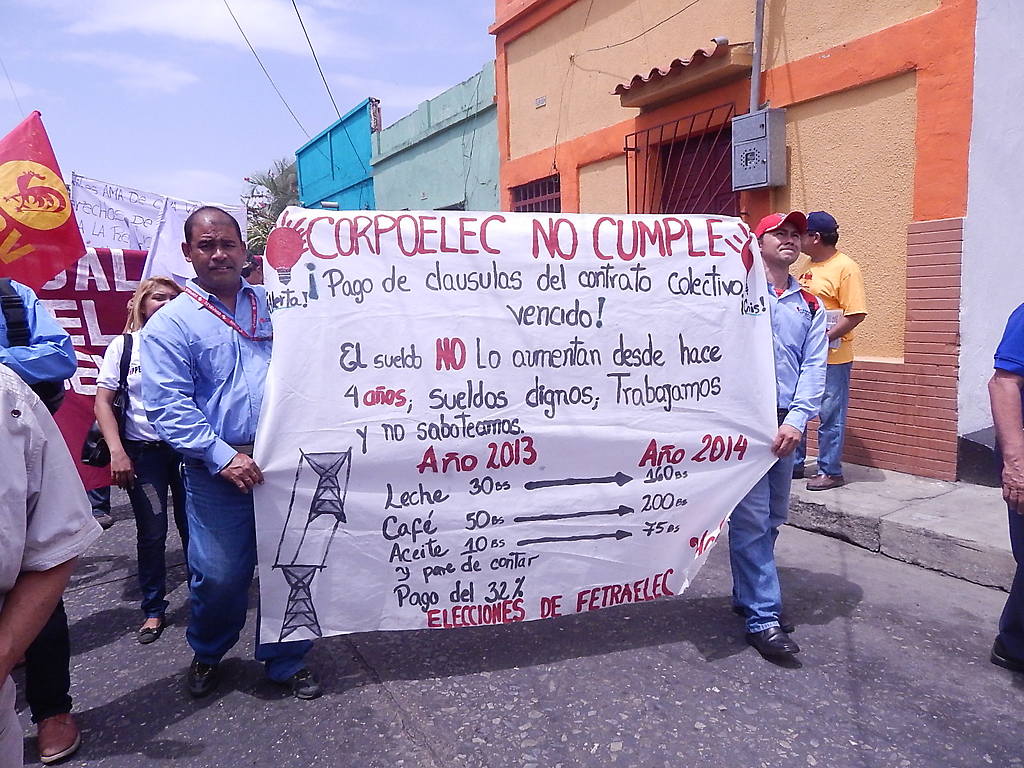 AMA DE
DAL
EL
CORPOELEC NO CUMPLE
¡Alerta! ¡Pago de clausulas del contrato colectivo,
vencido!
El sueldo NO Lo aumentan desde hace
4 años, sueldos dignos, Trabajamos
y no saboteamos.
Año 2013 Año 2014
Leche 30Bs 160Bs
Café 50Bs 200Bs
Aceite 10Bs 75Bs
y pare de contar
Pago del 32%
ELECCIONES DE FETRAELEC